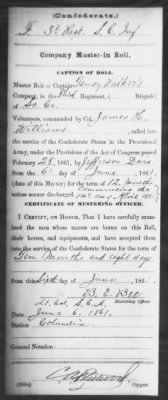 (Confederate.)
F 3d Regt. S.C. Inf
Company Muster-in Roll.
CAPTION OF ROLL.
Muster Roll of Captain
Company, in the Third Regiment, Brigade
of So. Ca.
Volunteers, commanded by Col. James H.
Williams, called into
the service of the Confederate States in the Provisional
Army, under the Provisions of the Act of Congress passed
February 28, 1861, by Jefferson Davis
from the 6th day of June, 1861,
(date of this Muster) for the term of 12 month
unless sooner discharged. Commencing the
14th day of April 1861
CERTIFICATE OF MUSTERING OFFICER.
I CERTIFY, ON HONOR, That I have carefully exam-
ined the men whose names are borne on this Roll,
their horses, and equipments, and have accepted them
into the service of the Confederate States for the term of
Ten months and eight days
from this sixth day of June, 1861.
B. E.
Mustering Officer.
Date June 6, 1861.
Station Columbia
General Notation:
(656c) Copyist.